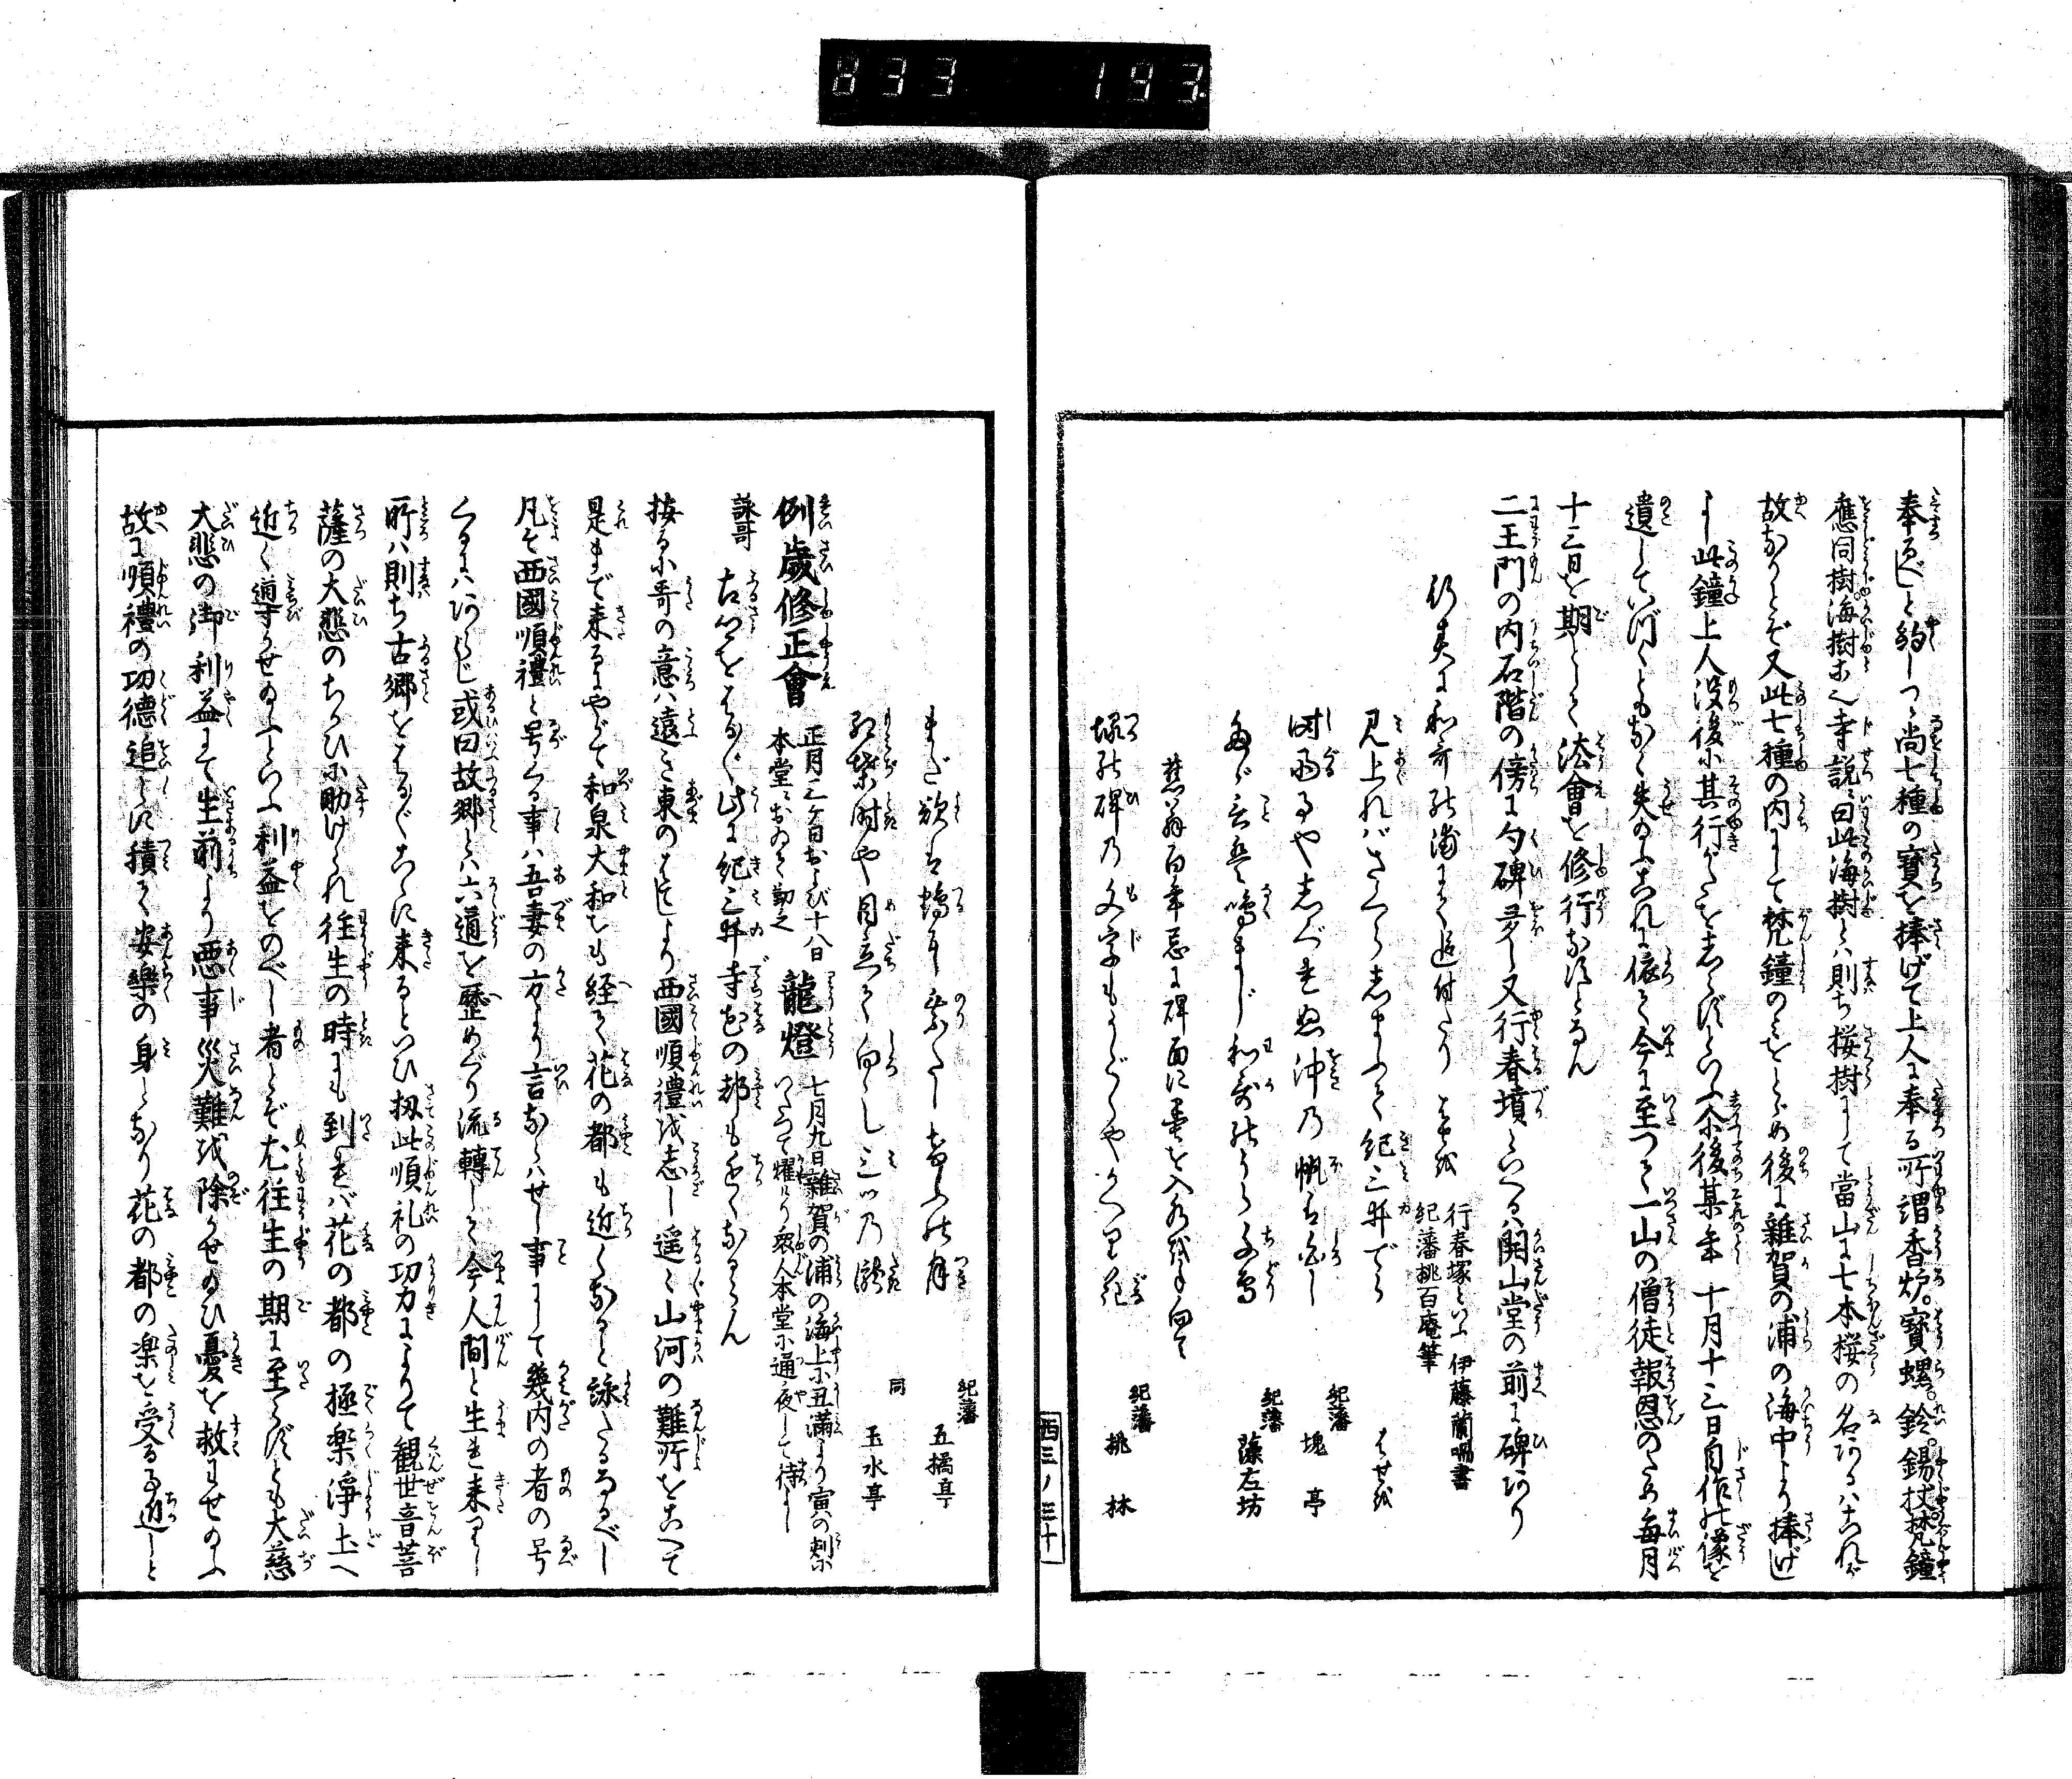 833 193
奉るべしと約しつゝ尚七種の寳を捧げて上人に奉る所謂香炉。寳螺。鈴。錫杖。梵鐘
應同樹。海樹等也寺説ニ曰此海樹とハ則ち桜樹にして當山に七本桜の名あるハこれが
故なりとぞ又此七種の内にして梵鐘のミをとゞめ後に雜賀の浦の海中より捧げ
し此鐘上人没後に其行がたをしらずといふ 後某年 十月十三日自作の像を
遺していづくともなく失給ふこれに依て今に至つて一山の僧徒報恩のため毎月
十三日を期として法會を修行なすとなん
二王門の内石階の傍に句碑多し又行春墳といへるハ開山堂の前に碑あり
行春に和哥の浦にて追付たり はせを 行春塚といふ 伊藤蘭嵎書
紀藩桃百庵筆
見上れバさくらしまふて紀三井でら はせを
時雨るや 沖の帆は白し 紀藩 塊亭
鳴まじ和哥のうら千鳥 紀藩 蘿左坊
蕉翁百年忌に碑面に墨を入
塚の碑の文字も 紀藩 桃林
まだ欲は 月 紀藩 五橘亭
紅葉時や目立て白し三ツの瀧 同 玉水亭
例歳修正會 正月三ケ日および十八日
本堂におゐて勤之 龍燈 七月九日雜賀の浦の海上に丑満より寅の刻に
いたつて耀けり衆人本堂に通夜して待よし
詠哥 古郷をはる〴〵此に紀三井寺花の都も近くなるらん
按るに哥の意ハ遠き東のはてしより西國順禮を志し遥〻山河の難所をこへて
是まで来るにやがて和泉大和をも経て花の都も近くなると詠たるなるべし
凡そ西國順禮と号くる事ハ吾妻の方より言ならハせし事にして幾内の者の号
くるにハあらじ或曰故郷とハ六道を歴めぐり流轉して今人間と生れ来りし
所ハ則ち古郷をはる〴〵こゝに来るといひ扨此順礼の功力によりて観世音菩
薩の大悲のちかひに助けられ往生の時にも到れバ花の都の極楽浄土へ
近く導かせ給ふといふ利益をのべし者とぞ尤往生の期に至らずとも大慈
大悲の御利益にて生前より悪事災難を除かせ給ひ憂を救ハせ給ふ
故に順禮の功德追〻に積て安樂の身となり花の都の楽を受る事近しと
西三ノ三十